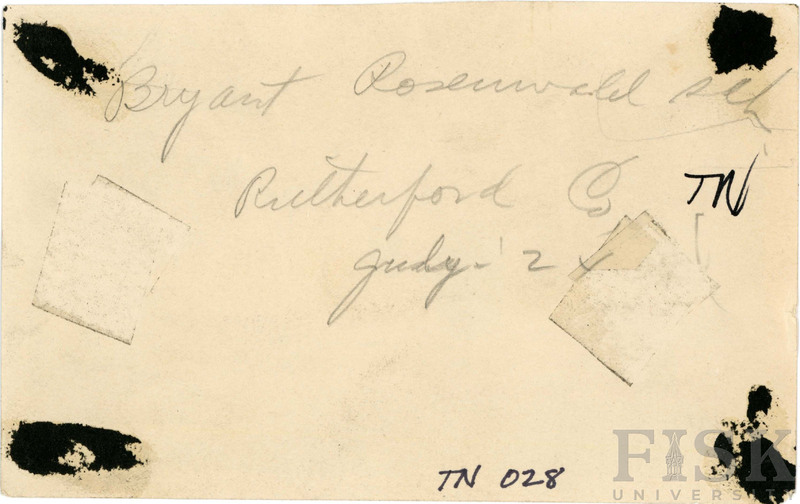 Bryant Rosenwald sch
Rutherford Co TN
2
TN 028
FISK
UNIVERSITY